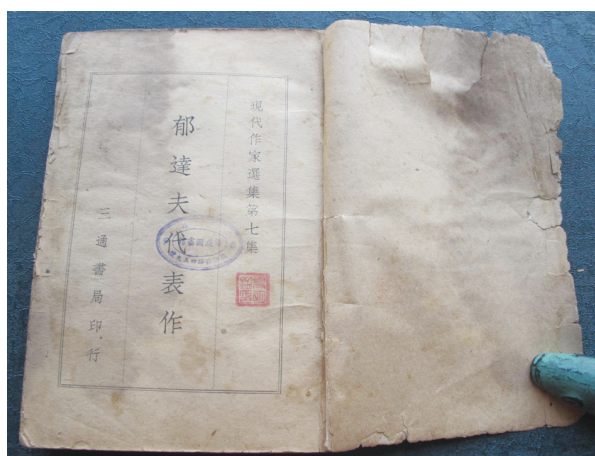 現代作家選集第七集
郁達夫代表作
三通書局印行